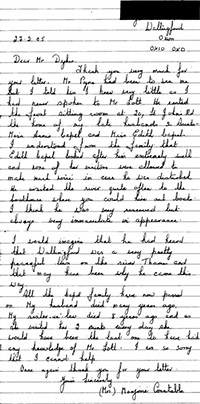 Wallingford
Oxon
OX10 0XD
22.2.05
Dear Mr Dyke
Thank you very much for
your letter. Mr Payne had been to see me
but I told him I knew very little as I
had never spoken to Mr Lott. He rented
the front sitting room at 20, St
the home of my late husband's Aunts -
Miss Hepel and Miss Edith Hepel.
I understood from the family that
Edith Hepel looked after him extremely well
and none of the visitors were allowed to
make much noise in case he was disturbed.
He visited the river quite often to the
boathouse where you could hire out boats.
I think he was very reserved but
always very immaculate in appearance.
I would imagine that he had heard
that Wallingford was a very pretty
peaceful town on the river Thames and
that may have been why he came this
way.
All the Hepel family have now passed
on. My husband died many years ago.
My sister-in-law died years ago and as
she visited her 2 aunts every day she
would have been the last one to have had
any knowledge of Mr Lott. I am so sorry
that I cannot help.
Once again thank you for your letter
Yours sincerely
(Mrs) Marjorie